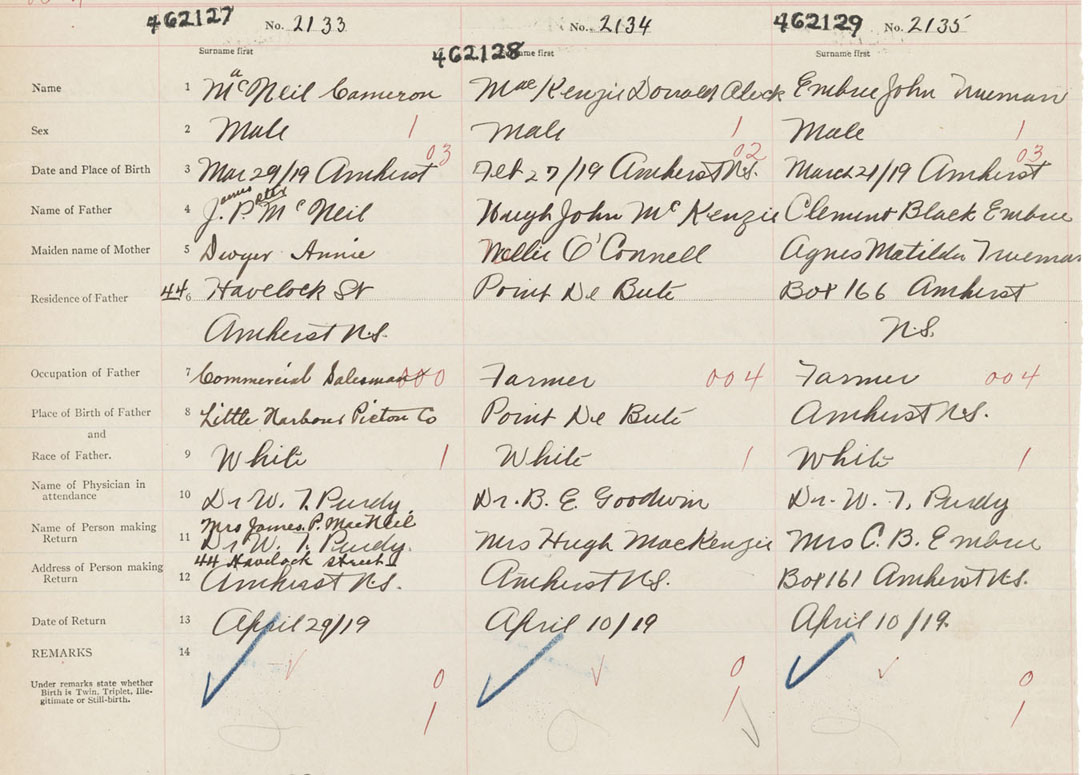 462127 No. 2133 No. 2134 462129 No. 2135
Surname first 462128 Surname first
Name 1 MacNeil Cameron MacKenzie Donald Aleck Embree John Trueman
Sex 2 Male 1 Male 1 Male 1
03 02 03
Date and Place of Birth 3 Mar 29/19 Amherst Feb 27/19 Amherst N.S. March 21/19 Amherst
ames eter
Name of Father 4 J. P. McNeil Hugh John McKenzie Clement Black Embree
Maiden name of Mother 5 Dwyer Annie Nellie O'Connell Agnes Matilda Trueman
Residence of Father 6 44 Havelock St Point De Bute Box 166 Amherst
Amherst N.S. N.S.
Occupation of Father 7 Commercial Salesman 000 Farmer 004 Farmer 004
Place of Birth of Father 8 Little Harbour Pictou Co Point De Bute Amherst N.S.
and
Race of Father. 9 White 1 White 1 White 1
Name of Physician in
attendance 10 Dr W. T. Purdy. Dr. B. E. Goodwin Dr. W. T. Purdy
Mrs James. P. MacNeil
Name of Person making
Return 11 Dr W. T. Purdy. Mrs Hugh MacKenzie Mrs C. B. Embree
44 Havelock Street
Address of Person making
Return 12 Amherst N.S. Amherst N.S. Box 161 Amherst N.S.
Date of Return 13 April 29/19 April 10/19 April 10/19.
REMARKS 14
Under remarks state whether
Birth is Twin, Triplet, Ille-
gitimate or Still-birth.
0 0 0
1 1 1